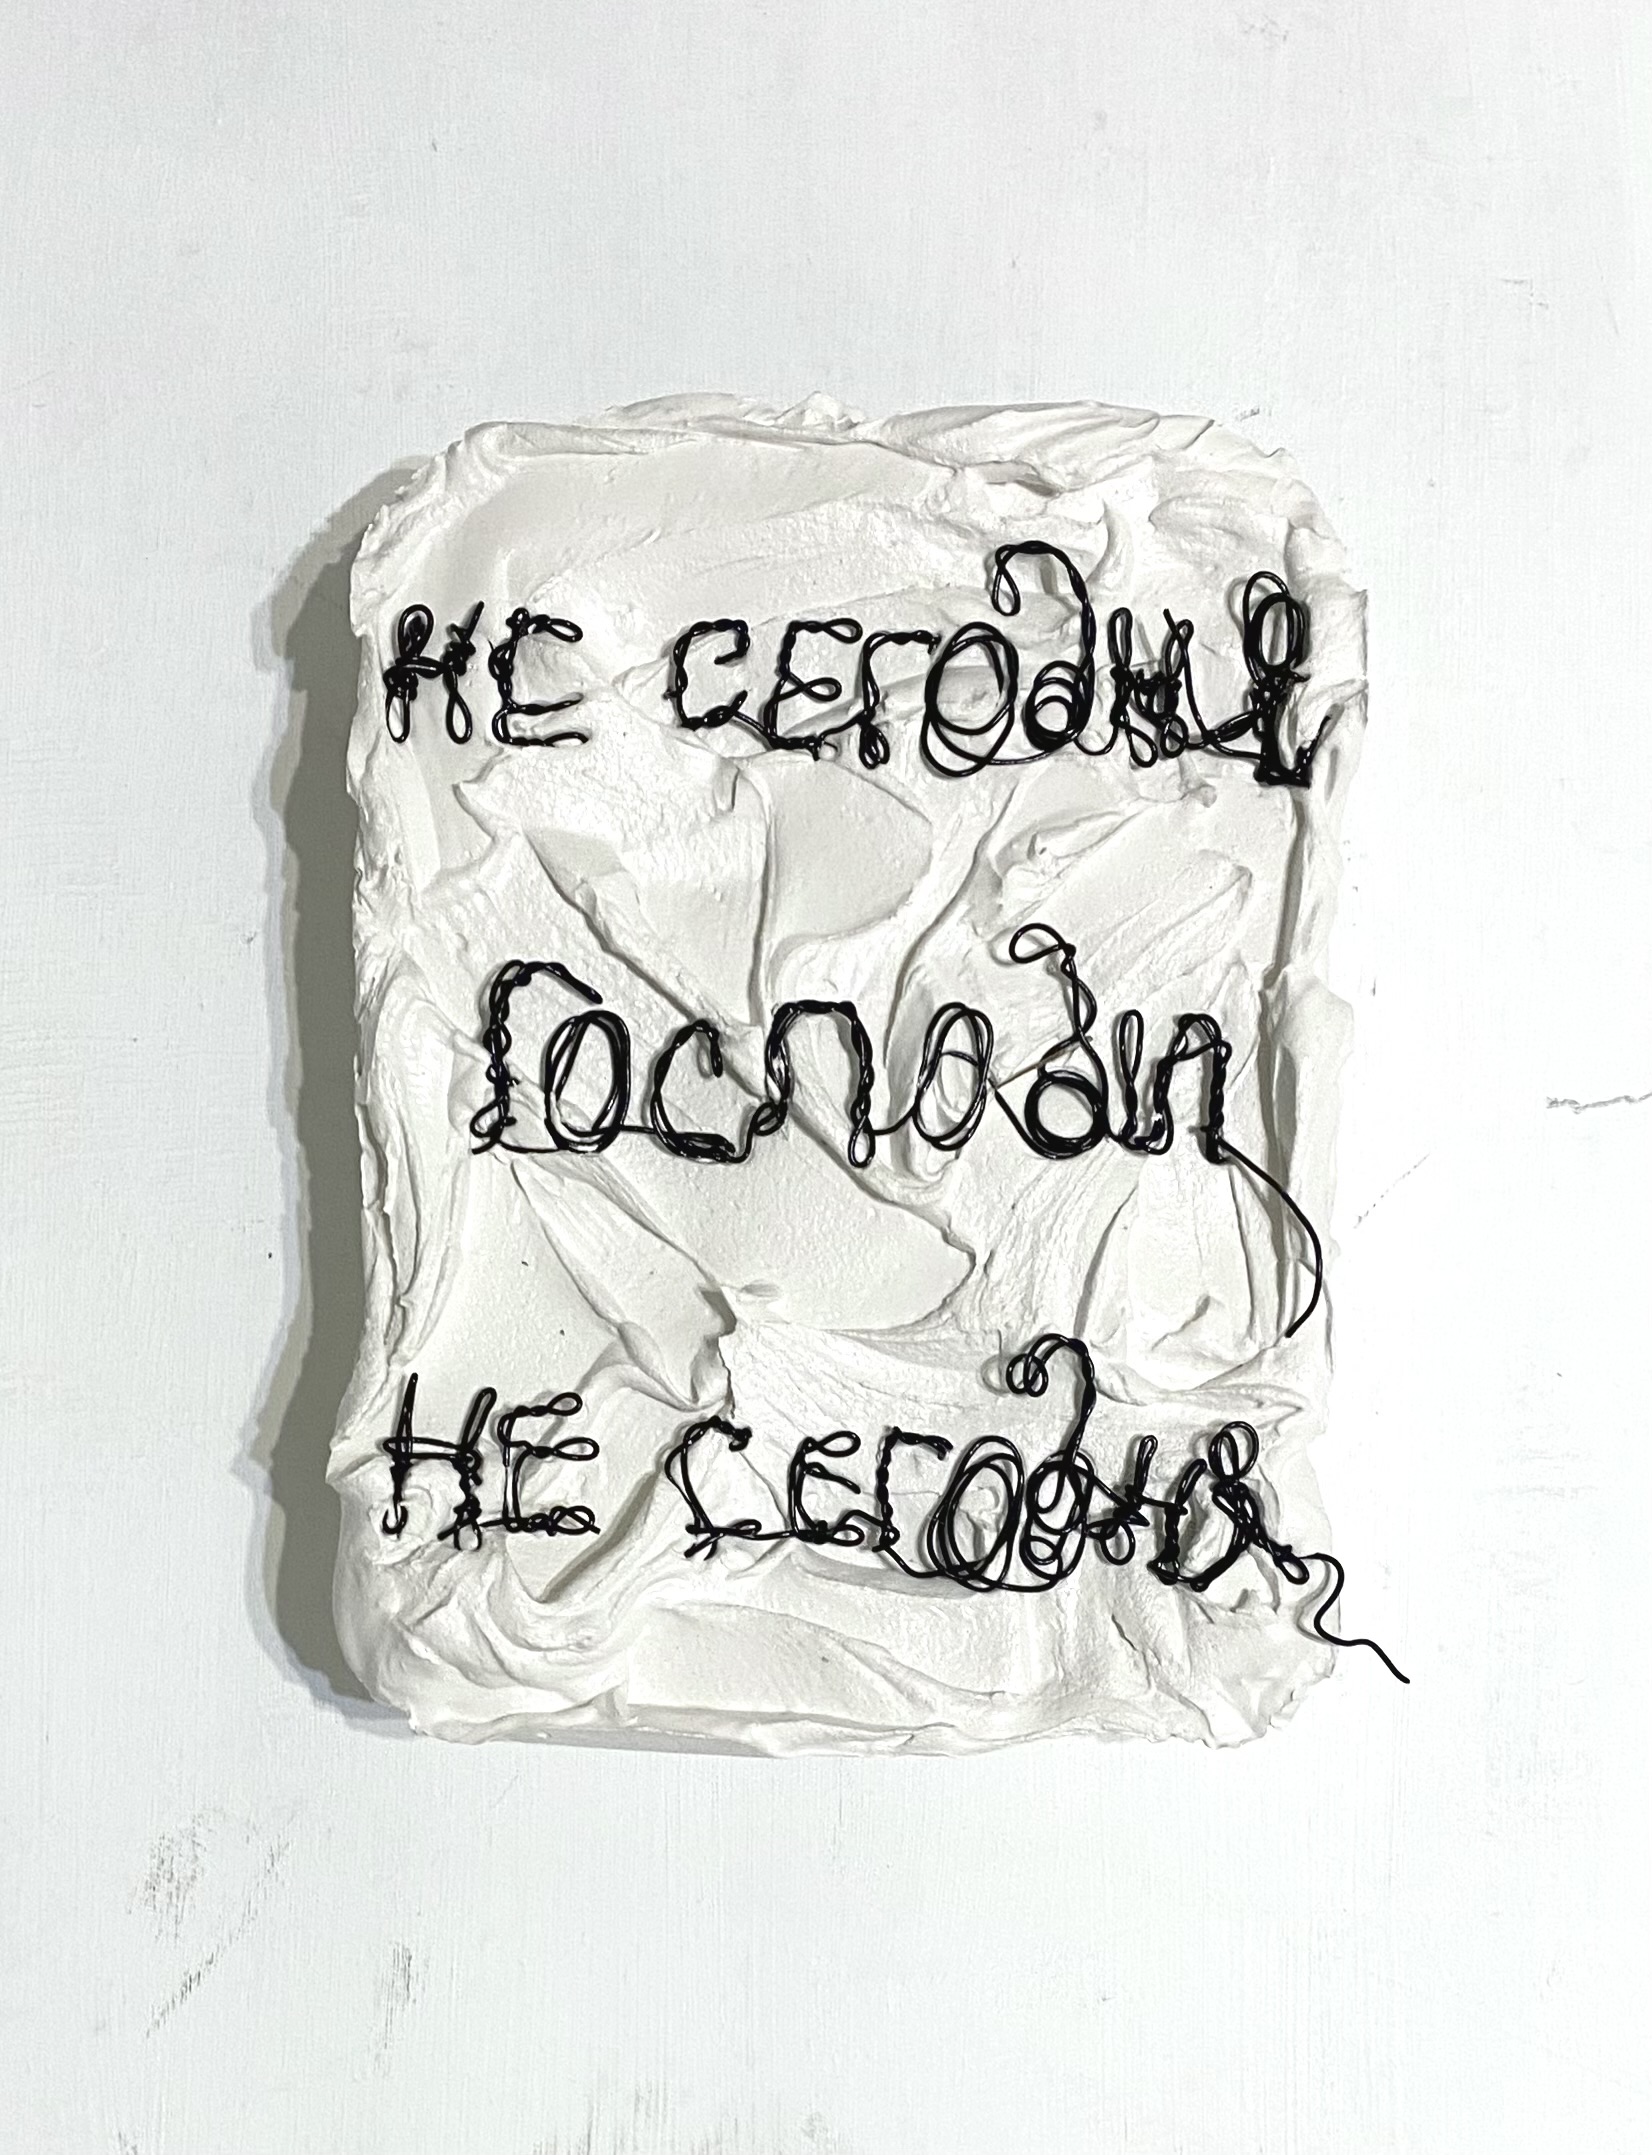 НЕ сегодня
Господи
НЕ сегодня